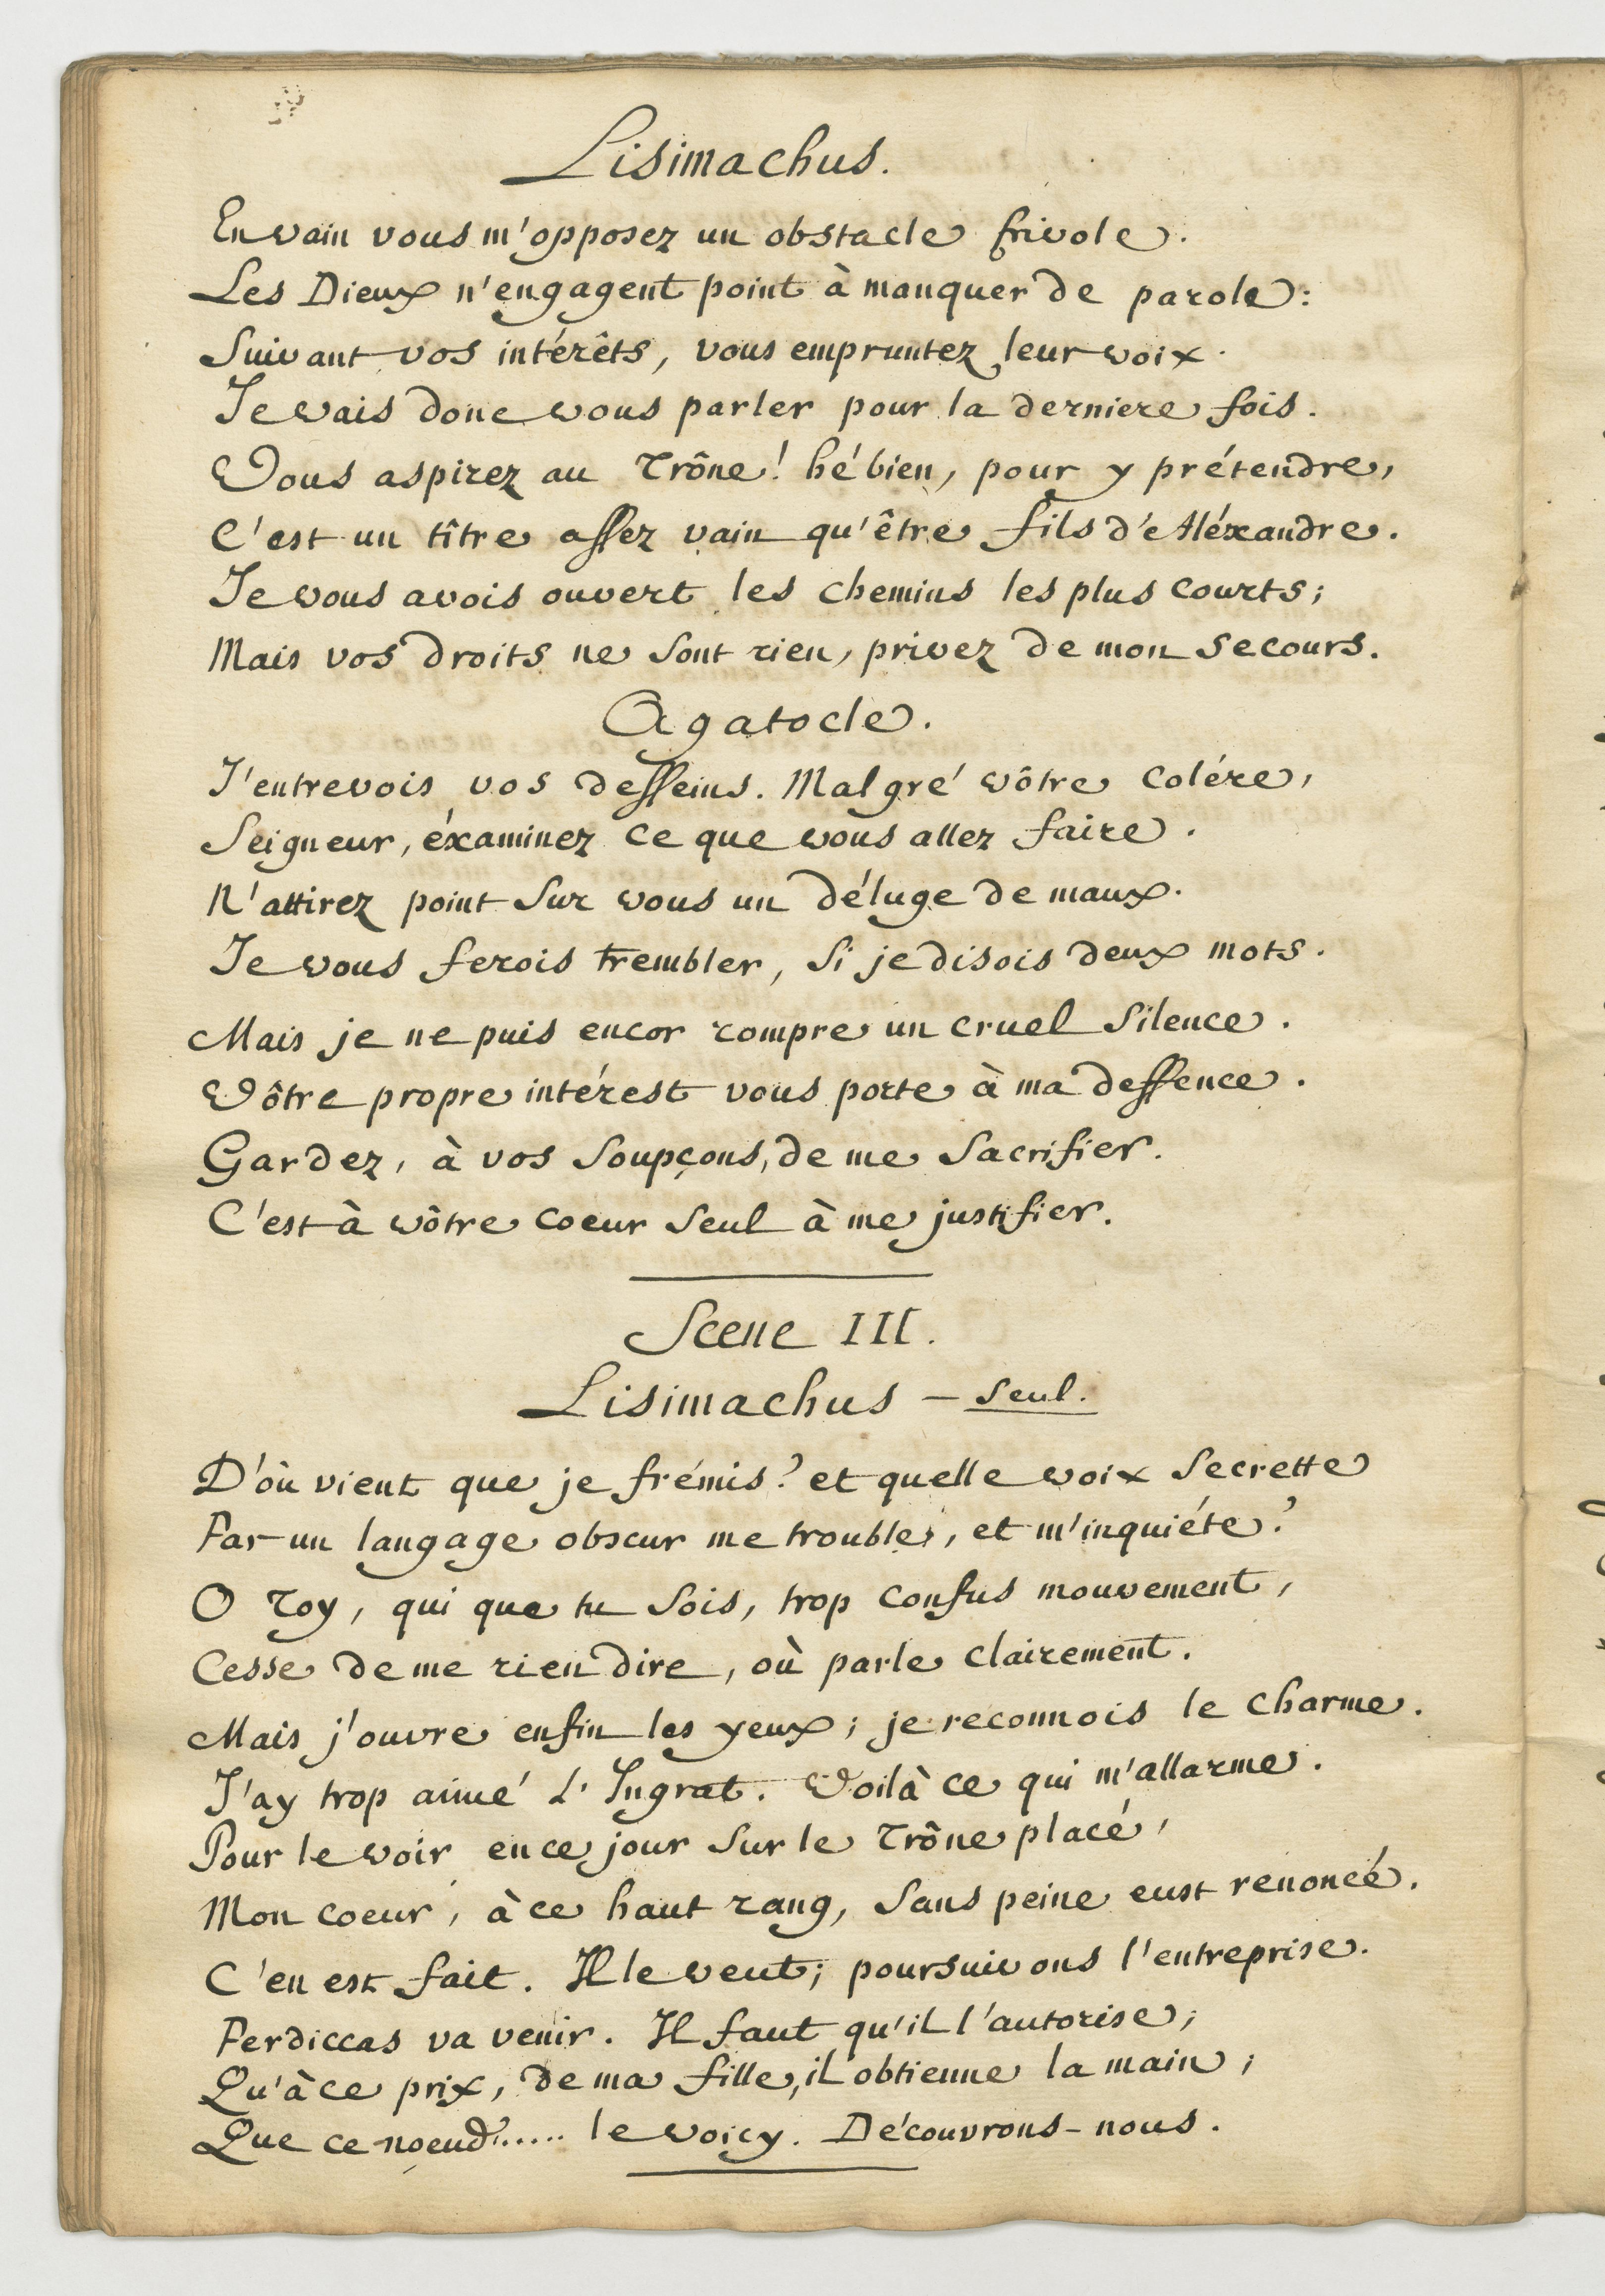 Lisimachus.
En vain vous m'opposez un obstacle frivole.
Les Dieux n'engagent point à manquer de parole:
Suivant vos intérêts, vous empruntez leur voix.
Je vais donc vous parler pour la derniere fois.
Vous aspirez au Trône! hé bien, pour y prétendre,
C'est un tître assez vain qu'être fils d'Aléxandre.
Je vous avois ouvert les chemins les plus courts;
Mais vos droits ne sont rien, privez de mon secours.
Agatocle.
J'entrevois vos desseins. Malgré vôtre colére,
Seigneur, éxaminez ce que vous allez faire.
N'attirez point sur vous un déluge de maux.
Je vous ferois trembler, si je disois deux mots.
Mais je ne puis encor rompre un cruel silence.
Vôtre propre intérest vous porte à ma deffence.
Gardez, à vos soupçons, de me sacrifier.
C'est à vôtre coeur seul à me justifier.
Scene III.
Lisimachus – seul.
D'où vient que je frémis? et quelle voix secrette
Par un langage obscur me trouble, et m'inquiéte?
O toy, qui que tu sois, trop confus mouvement,
Cesse de me rien dire, où parle clairement.
Mais j'ouvre enfin les yeux; je reconnois le charme.
J'ay trop aimé L'Ingrat. Voilà ce qui m'allarme.
Pour le voir en ce jour sur le Trône placé,
Mon coeur, à ce haut rang, sans peine eust renoncé.
C'en est fait. Il le veut; poursuivons l'entreprise.
Perdiccas va venir. Il faut qu'il l'autorise;
Qu'à ce prix, de ma fille, il obtienne la main;
Que ce noeud..... le voicy. Découvrons-nous.